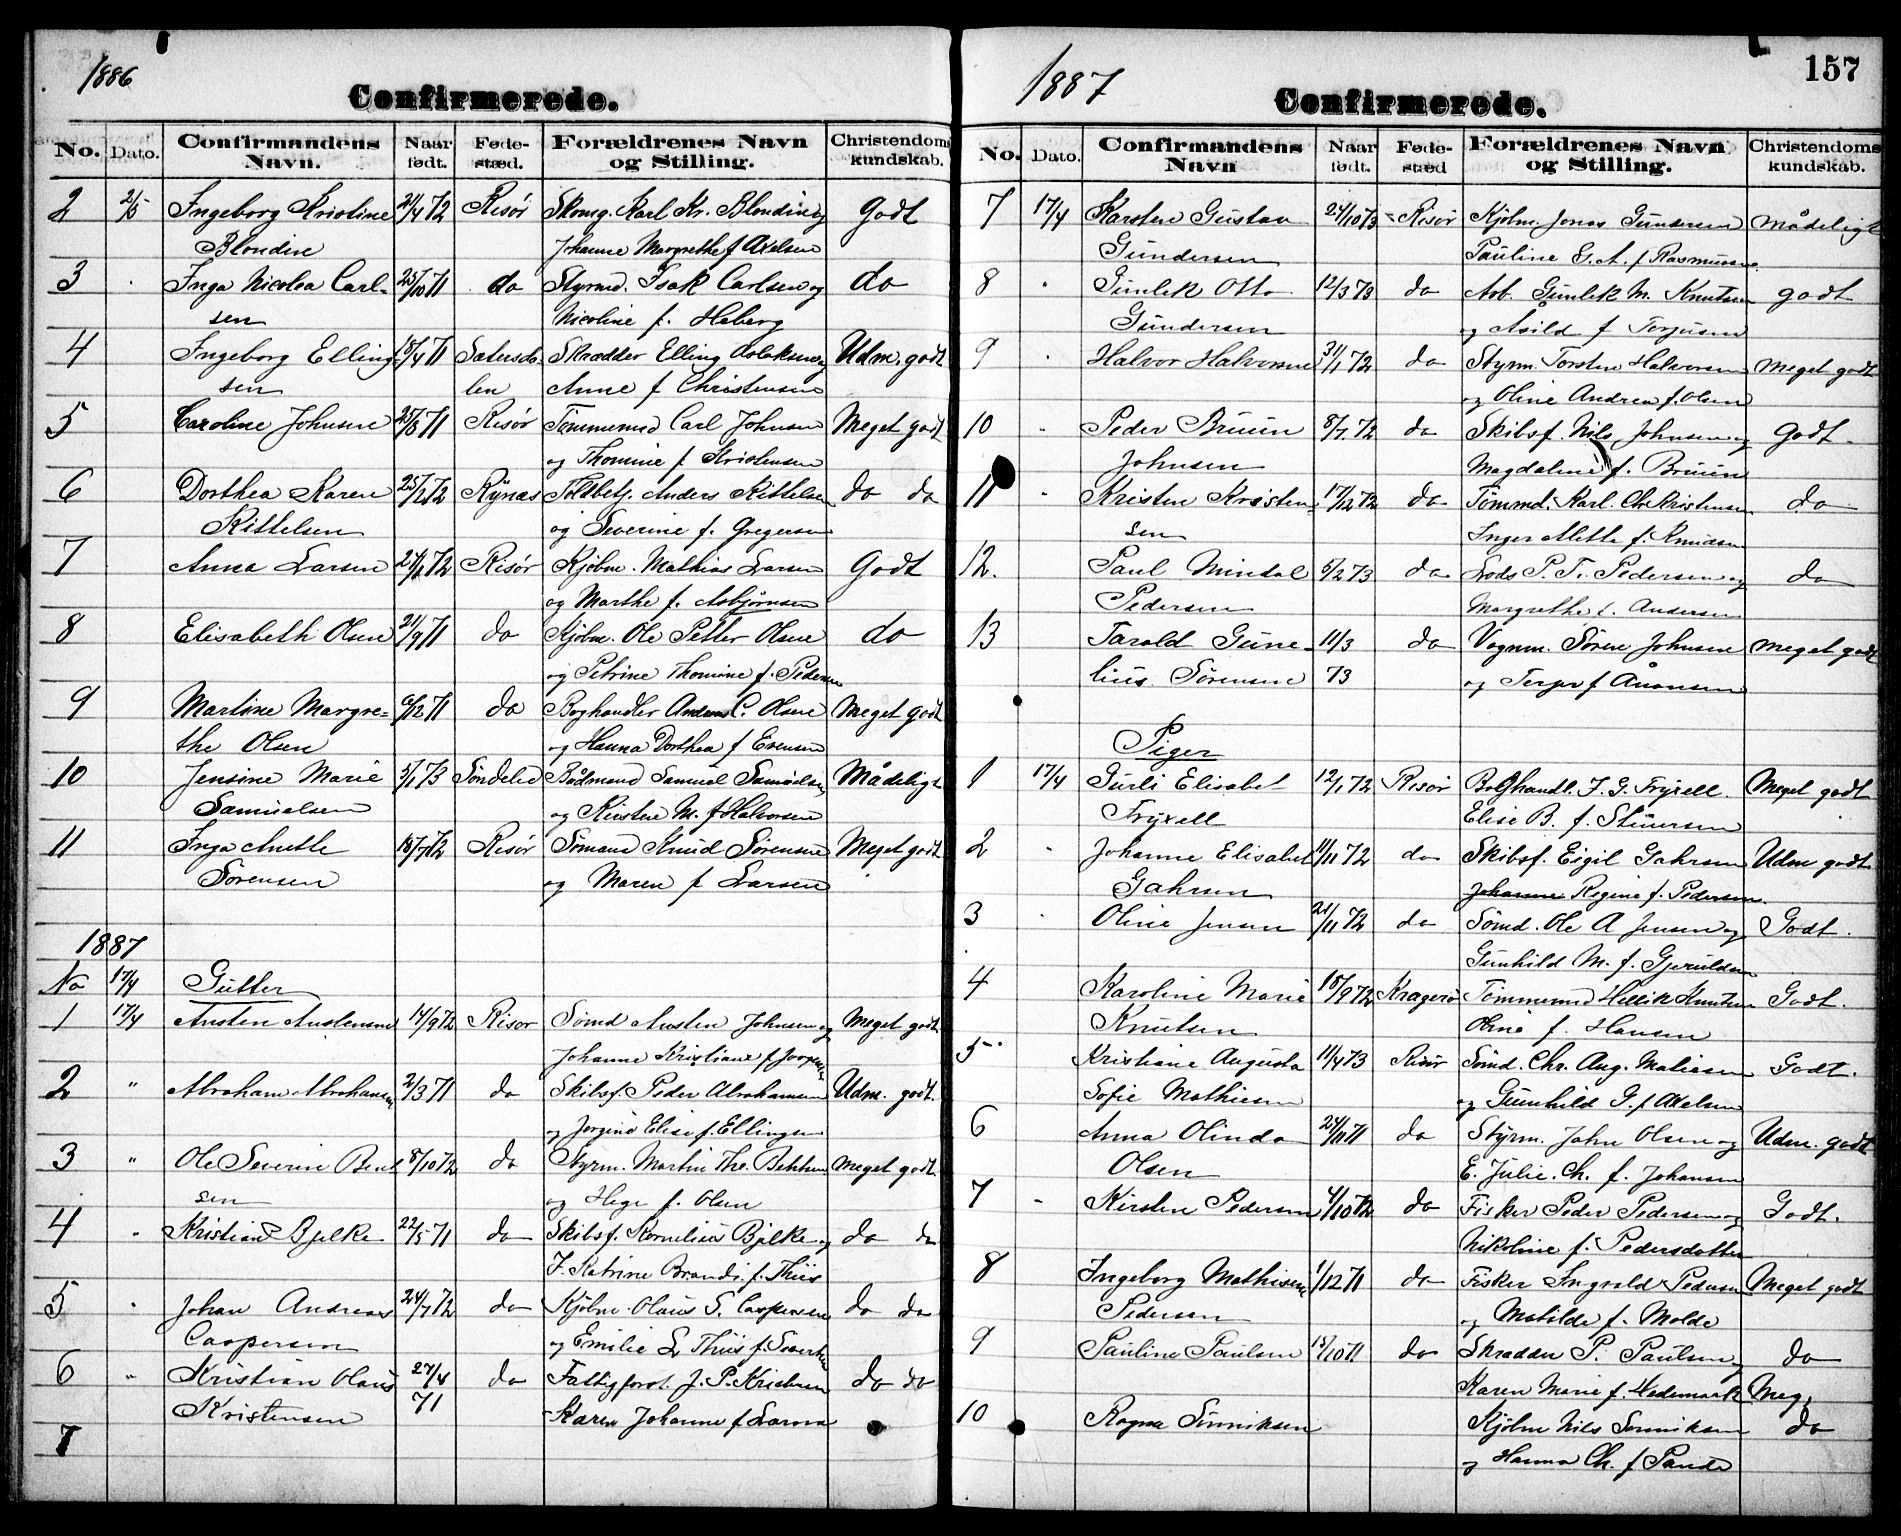 1886
Confirmerede.
No. Dato. Confirmandens Navn. Naar født. Fødestæd. Forældrenes Navn og Stilling. Christendomskundskab.
2 2/5 Ingeborg Kristine 21/4 72 Risør Skomg. Karl Kr. Blondin og Godt
Blondin Johanne Margrethe f Axelsen
3 Inga Nicolea Carl- 25/10 71 do Styrmd. Isak Carlsen og do
sen Nicoline f. Heberg
4 Ingeborg Elling- 18/4 71 Sætersda- Skrædder Elling Aslaksen og Udm. godt
sen len Anne f Christensen
5 Caroline Johnsen 25/8 71 Risør Tømmermd Carl Johnsen Meget godt
og Thomine f Kristensen
6 Dorthea Karen 25/2 72 Rynæs Toldbetj. Anders Kittelsen do do
Kittelsen og Severine f. Gregersen
7 Anna Larsen 24/1 72 Risør Kjøbm. Mathias Larsen Godt
og Marthe f. Asbjørnsen
8 Elisabeth Olsen 21/9 71 do Kjøbm. Ole Petter Olsen do
og Petrine Thomine f. Pedersen
9 Martine Margre- 6/12 71 do Boghandler Anders C. Olsen Meget godt
the Olsen og Hanna Dorthea f Evensen
10 Jensine Marie 5/1 73 Søndeled Baadmand Samuel Samuelsen Mådeligt
Samuelsen og Kirstene M. f Halvorsen
11 Inga Anette 18/7 72 Risør Sømand Knud Sørensen Meget godt
Sørensen og Maren f Larsen
1887
No 17/4 Gutter
1 17/4 Austen Austensen 14/9 72 Risør Sømd Austen Johnsen og Meget godt
Johanne Kristiane f Jespersen
2 " Abraham Abrahamsen 2/3 71 do Skibsf. Peder Abrahamsen Udm. godt.
og Jørgine Elise f. Ellingsen
3 " Ole Severin Bent 8/10 72 do Styrm. Martin The. meget godt.
sen og Hege f. Olsen
4 Kristian Bjelke 22/5 71 do Skibsf. Kornelius Bjelke og do do
J. Katrine Brandi f. Thiis
5 Johan Andreas 24/7 72 do Kjøbm. Olaus S. Caspersen do do
Caspersen og Emilie L. Thiis f.
6 " Kristian Olaus 27/4 do Fattigforst. J. P. Kristensen do do
Kristensen 71 Karen Johanne f Larsen
7

1887
157
Confirmerede.
No. Dato. Confirmandens Navn Naar født. Fødestæd Forældrenes Navn og Stilling. Christendomskundskab.
7 17/4 Karsten Gustav 24/10 73 Risør Kjøbm. Jonas Gundersen mådeligt
Gundersen Pauline G. A. f Rasmussen.
8 Gunlek Otto 12/3 73 do Arb. Gunlek M. Knutsen godt
Gundersen og Asild f Terjusen
9 Halvor Halvorsen 31/1 72 do Styrm. Torsten Halvorsen meget godt
og Oline Andrea f. Olsen
10 Peder Bruun 8/7 72 do Skibsf. Nils Johnsen og godt.
Johnsen Magdaline f. Bruun
11 Kristen Kristen 17/12 72 do Tømmd. Karl Chr Kristensen do
sen Inger Mette f. Knudsen
12. Paul Mindal 5/2 73 do Lods P. T. Pedersen og do
Pedersen Margrethe f. Andersen
13 Tarald Gune- 11/3 do Vognm. Søren Johnsen meget godt
lius Sørensen 73 og Terjer f Aanonsen
Piger
1 17/4 Gurli Elisabet 12/1 72 Risør Boghandl. F. G. Fryxell Meget godt
Fryxell Elise B. f. Stiansen
2 Johanne Elisabet 11/11 72 do Skibsf. Eigil Gahrsen Udm godt.
Gahrsen Johanne Regine f. Pedersen.
3 Oline Jensen 21/11 72 do Sømd. Ole A Jensen og Godt.
Gunhild M. f. Gjeruldsen
4 Karoline Marie 18/9 72 Kragerø Tømmermd Hellik Knutsen Godt.
Knutsen Oline f. Hansen
5 Kristiane Augusta 11/4 73 Risør Sømd. Chr. Aug. Matiesen Godt.
Sofie Mathiesen og Gunhild G. f Axelsen
6 Anna Olinda 24/10 71 do Styrm. John Olsen og Udm. godt
Olsen E. Julie. Ch. f. Johansen
7 Kirsten Pedersen 4/10 72 do Fisker Peder Pedersen og Godt.
Nikoline f. Pedersdatter
8 Ingeborg Mathisen 1/12 71 do Fisker Ingvald Pedersen Meget godt
Pedersen og Matilde f. Molde
9 Pauline Paulsen 15/10 71 do Skradder P. Paulsen og do
Karen Marie f. Hedemark Meg,
10 Ragna Sønniksen Kjøbm Nils Sønniksen do
og Hanna Ch. f Sande